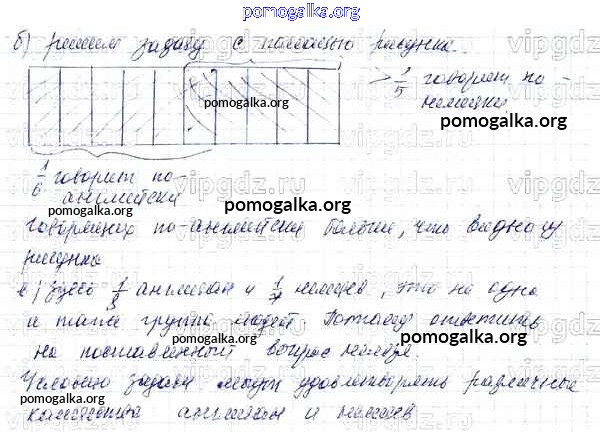 pomogalka.org
б) решим задачу с помощью рисунка.
1/5 говорит по-
немецки
pomogalka.org
pomogalka.org
pomogalka.org
1/6 говорит по-
английски
pomogalka.org
pomogalka.org
говорящих по-английски больше, что видно из
рисунка
англичан и немцев, это не одна
и та же группа людей. Потому ответить
на поставленный вопрос нельзя.
Условию задачи могут удовлетворять различные
количества англичан и немцев
pomogalka.org
pomogalka.org
pomogalka.org
pomogalka.org